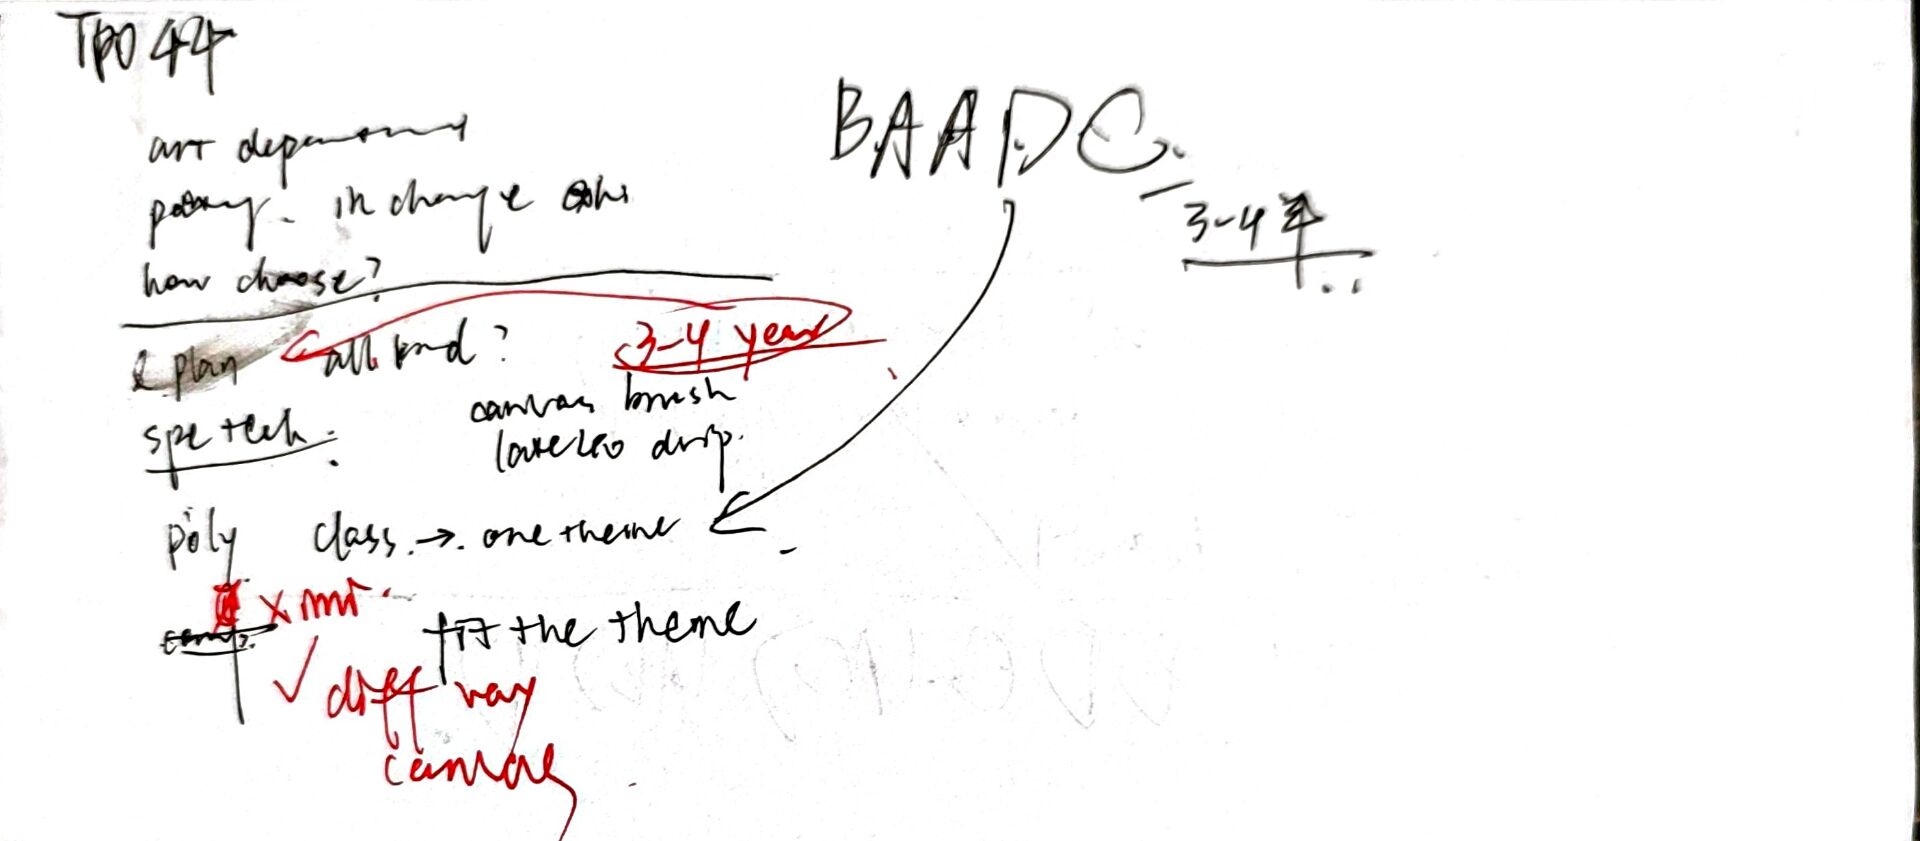 TPO 44
art department
in charge
how choose?
plan all kind?
3-4 year
spe tech.
canvas brush
drip.
poly class. → one theme
x
fit the theme
✓ diff way
canvas
BAADC.
3-4年